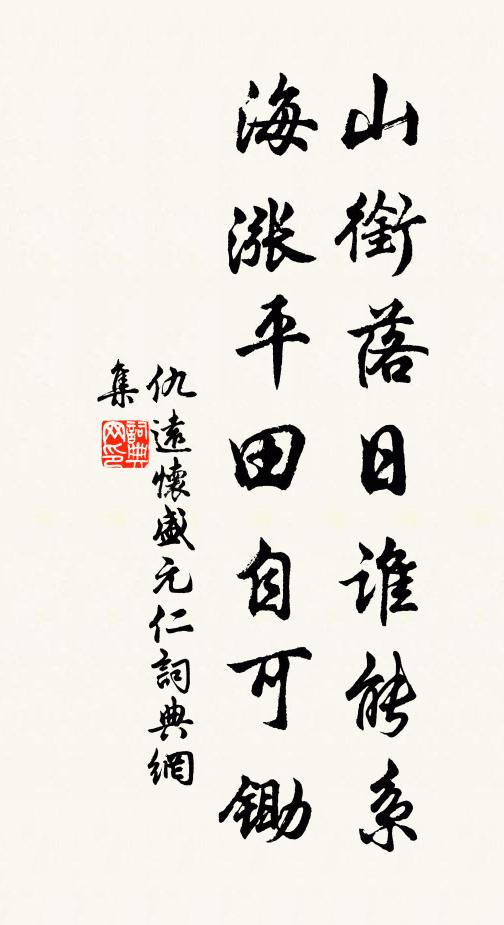 山銜落日誰能系
海漲平田自可鋤
仇遠懷盛元仁詞典網
集
詞典
网印